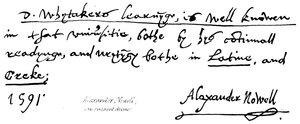 D. Whytakers learnyng, is well knowen
in that universitie, bothe by his continuall
readynge, and wrytyng bothe in Latine, and
Greke:
1591 Alexander Nowell
Alexander Nowell,